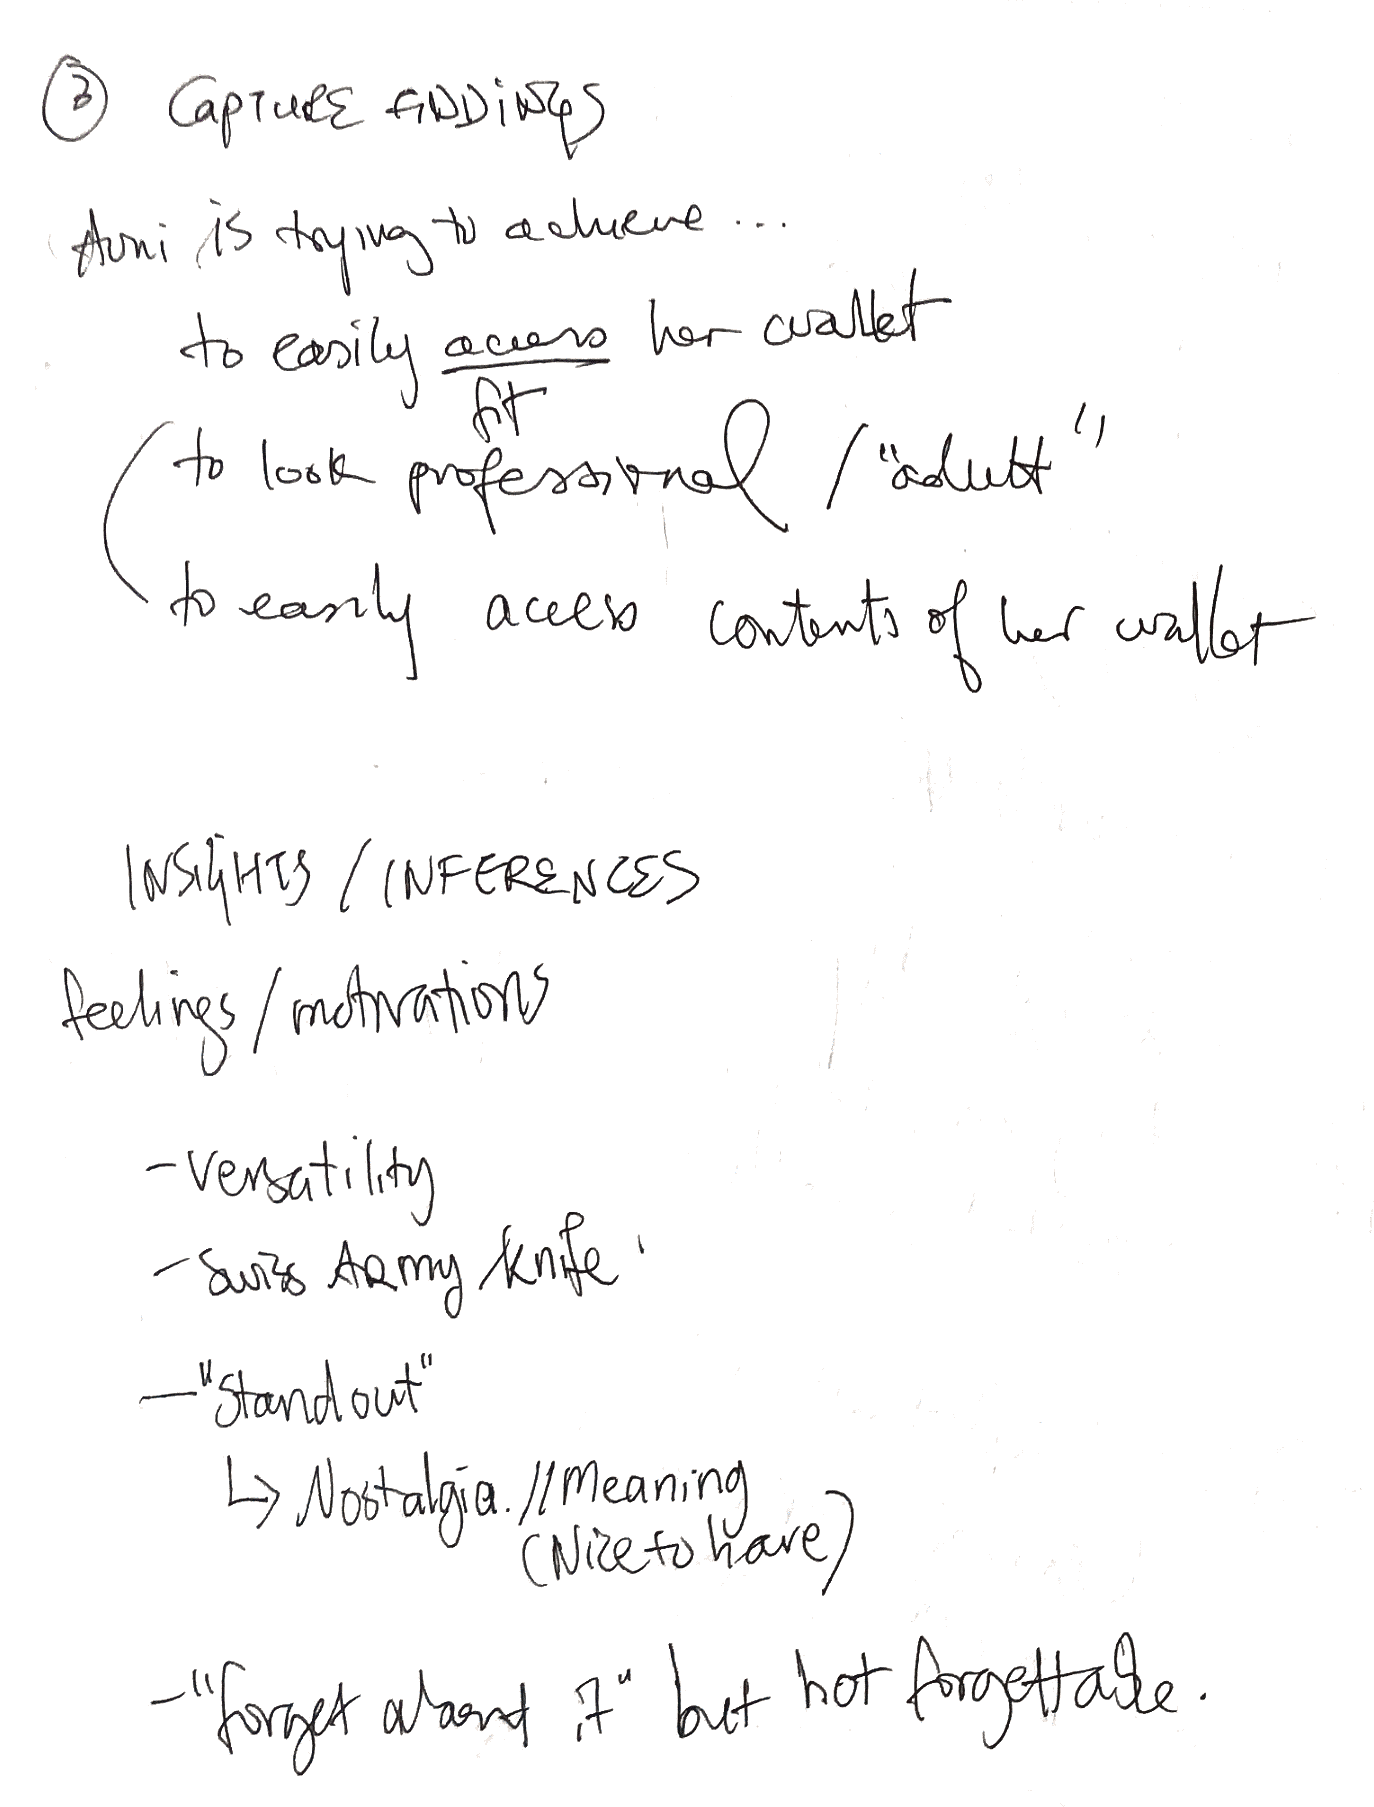 3 CAPTURE FINDINGS
Avni is trying to achieve ...
to easily access her wallet
fit
to look professional / "adult"
to easily access contents of her wallet
INSIGHTS / INFERENCES
feelings / motivations
- Versatility
- Swiss Army knife
- "Stand out"
↳ Nostalgia. // Meaning
(Nice to have)
- "forget about it" but not forgettable.